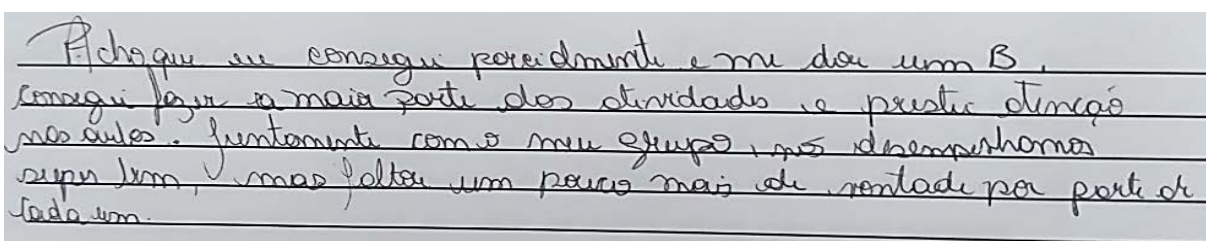 Acho que eu consegui parcialmente e me dou um B,
consegui fazer a maior parte das atividades e prestei atenção
nas aulas. Juntamente com o meu grupo, nós desempenhamos
super bem, mas faltou um pouco mais de vontade por parte de
cada um.